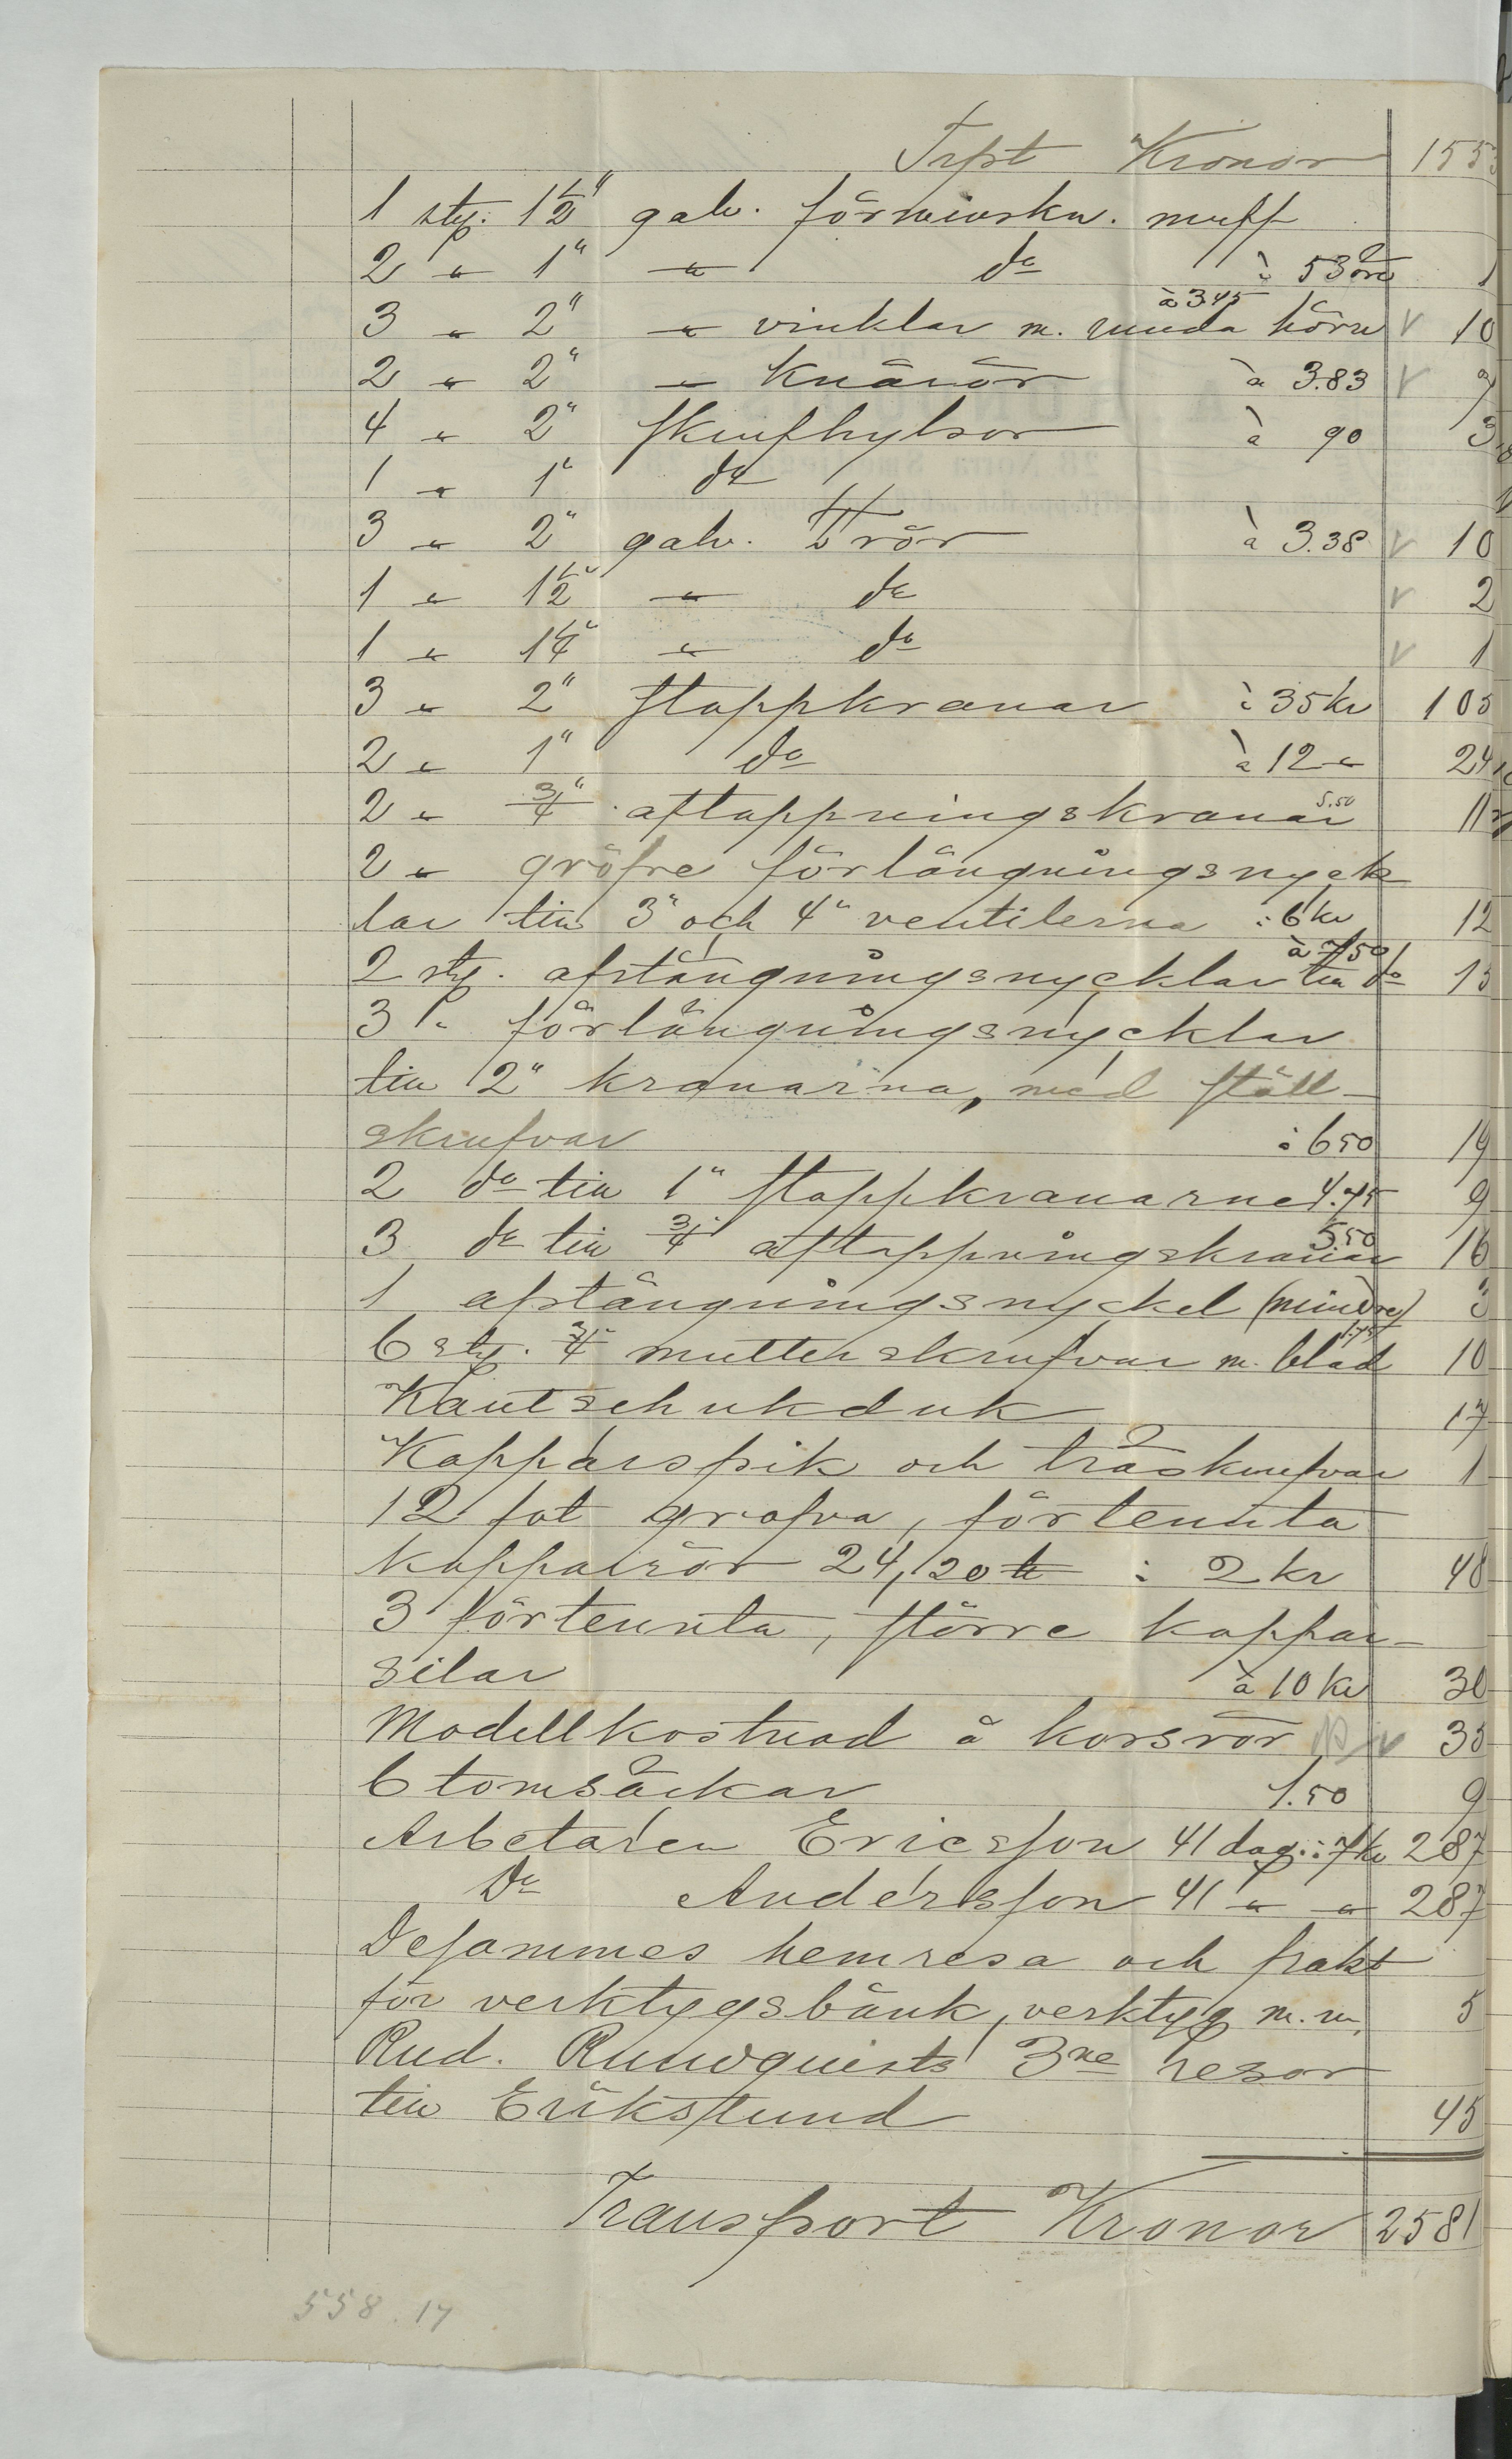 Trpt Kronor 155
1 sty. 1½" galv. förminskn. muff
2 " 1" " do à 53 öre 1
3 " 2" " vinklar m. runda hörn à 345 V 10
2 " 2" " knärör à 3.83 V 7
4 " 2" skrufhylsor à 90 3
1 " 1" do
3 " 2" galv. T rör à 3.38 V 10
1 " 1½" " do V 2
1 " 1¼" " do V 1
3 " 2" stoppkranar à 35 kr 105
2 " 1" do à 12 " 24
2 " ¾" aftappningskranar 5.50 11
2 " gröfre förlängningsnyck
lar till 3" och 4" ventilerna à 6 kr 12
2 sty. afstängningsnycklar till do à 7.50 15
3 " förlängningsnycklar
till 2" kranarna, med ställ-
skrufvar à 6 50 19
2 do till 1" stoppkranarne 4.75 9
3 do till ¾" aftappningskranar 5.50 16
1 afstängningsnyckel (mindre) 3
6 sty. ¾" mutterskrufvar m. blad 1.75 10
Kautschukduk 17
Kopparspik och träskrufvar 1
12 fot grofva, förtennta
kopparrör 24,20 ℔ à 2 kr 48
3 förtennta, större koppar-
silar à 10 kr 30
Modellkostnad å korsrör V 35
6 tomsäckar 1.50 9
Arbetaren Ericsson 41 dag. à 7 kr 287
Do Andersson 41 " " 287
Desammes hemresa och frakt
för verktygsbänk, verktyg m. m. 5
Rud. Rundquists 3ne resor
till Erikslund 45
Transport Kronor 2581
558.17